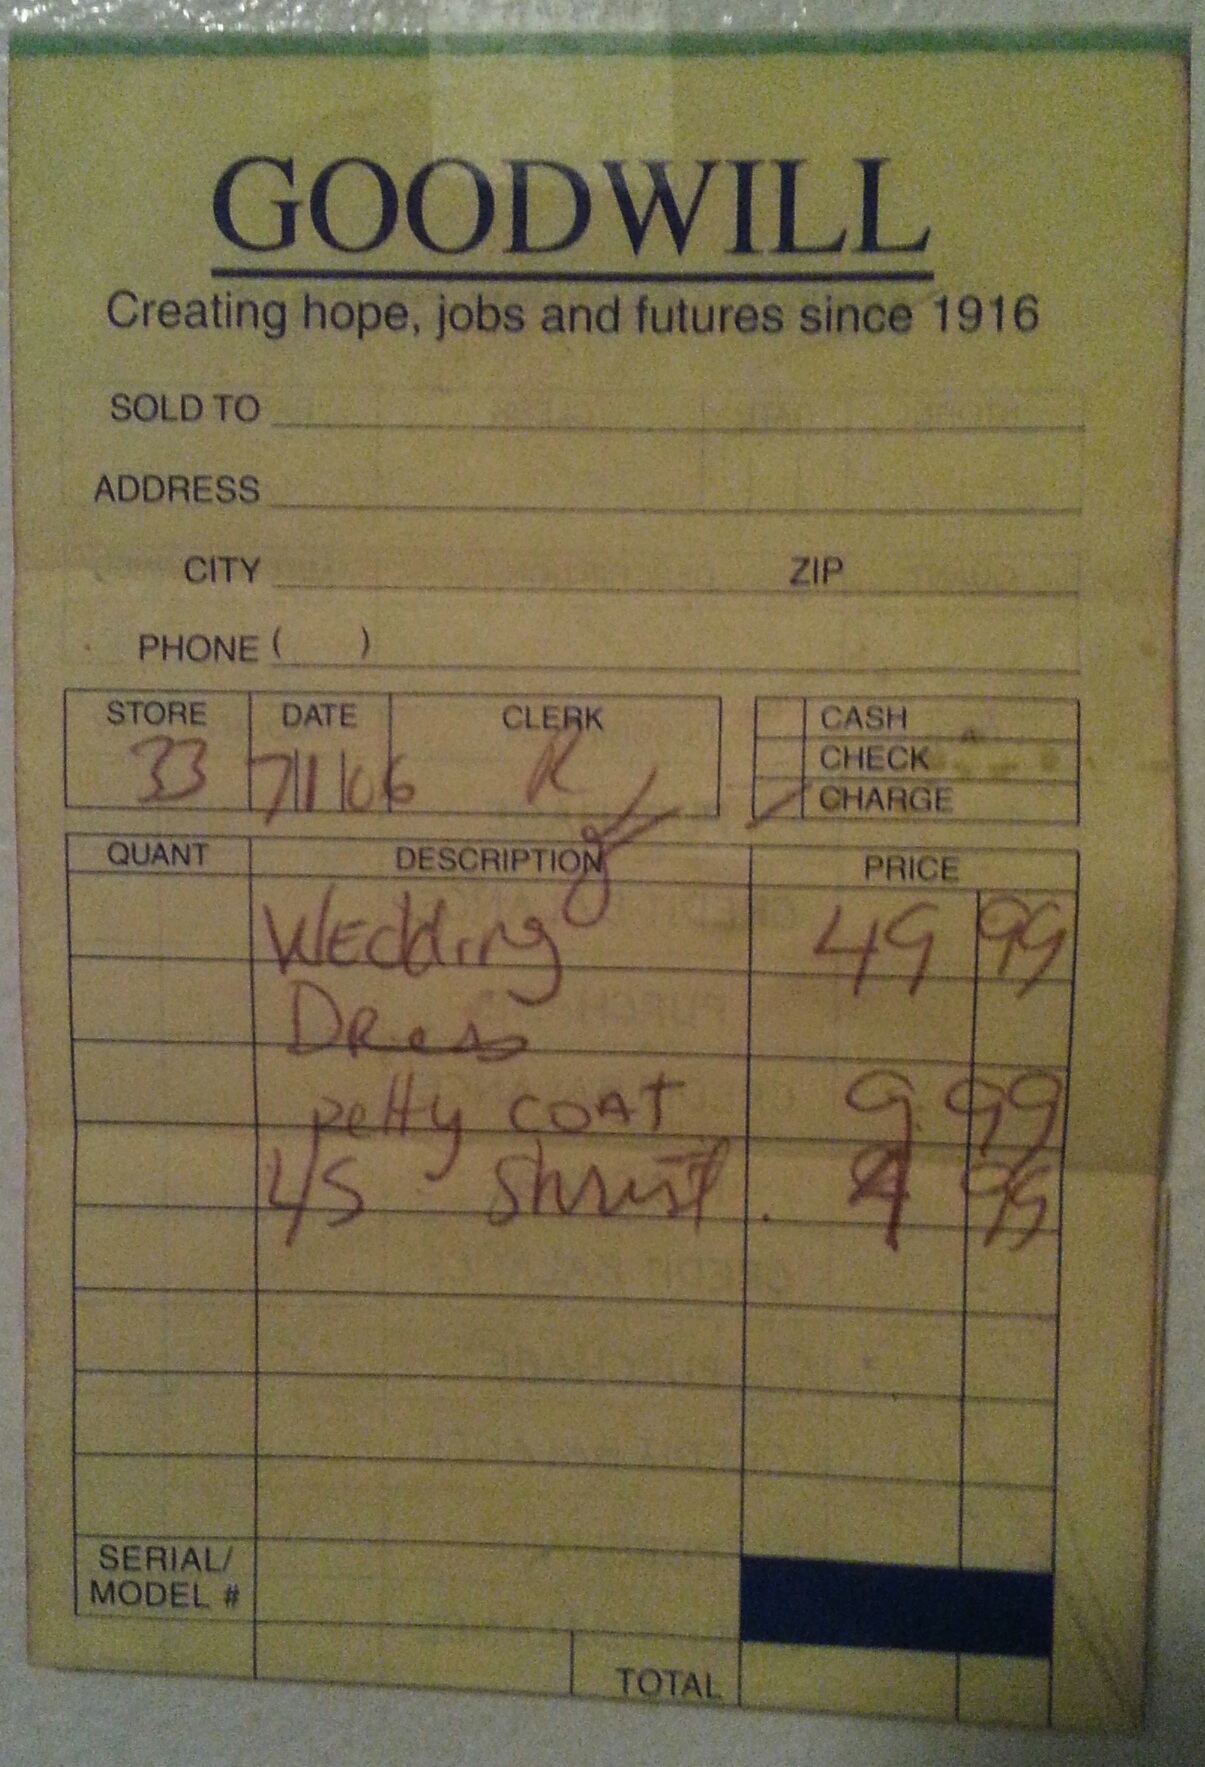 GOODWILL
Creating hope, jobs and futures since 1916
SOLD TO
ADDRESS
CITY ZIP
PHONE ( )
STORE DATE CLERK
33 7/1/06 R
CASH
CHECK
CHARGE
QUANT DESCRIPTION PRICE
Wedding 49 99
Dress
petty COAT 9 99
L/S 99
SERIAL/
MODEL #
TOTAL